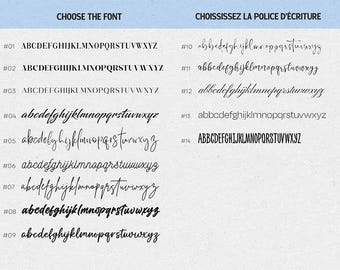 CHOOSE THE FONT
#01 ABCDEFGHIJKLMNOPQRSTUVWXYZ
#02 ABCDEFGHIJKLMNOPQRSTUVWXYZ
#03 ABCDEFGHIJKLMNOPQRSTUVWXYZ
#04 abcdefghijklmnopqrstuvwxyz
#05 abcdefghijklmnopqrstuvwxyz
#06 abcdefghijklmnopqrstuvwxyz
#07 abcdefghijklmnopqrstuvwxyz
#08 abcdefghijklmnopqrstuvwxyz
#09 abcdefghijklmnopqrstuvwxyz
CHOISISSEZ LA POLICE D'ÉCRITURE
#10 abcdefghijklmnopqrstuvwxyz
#11 abcdefghijklmnopqrstuvwxyz
#12 abcdefghijklmnopqrstuvwxyz
#13 abcdefghijklmnopqrstuvwxyz
#14 ABCDEFGHIJKLMNOPQRSTUVWXYZ